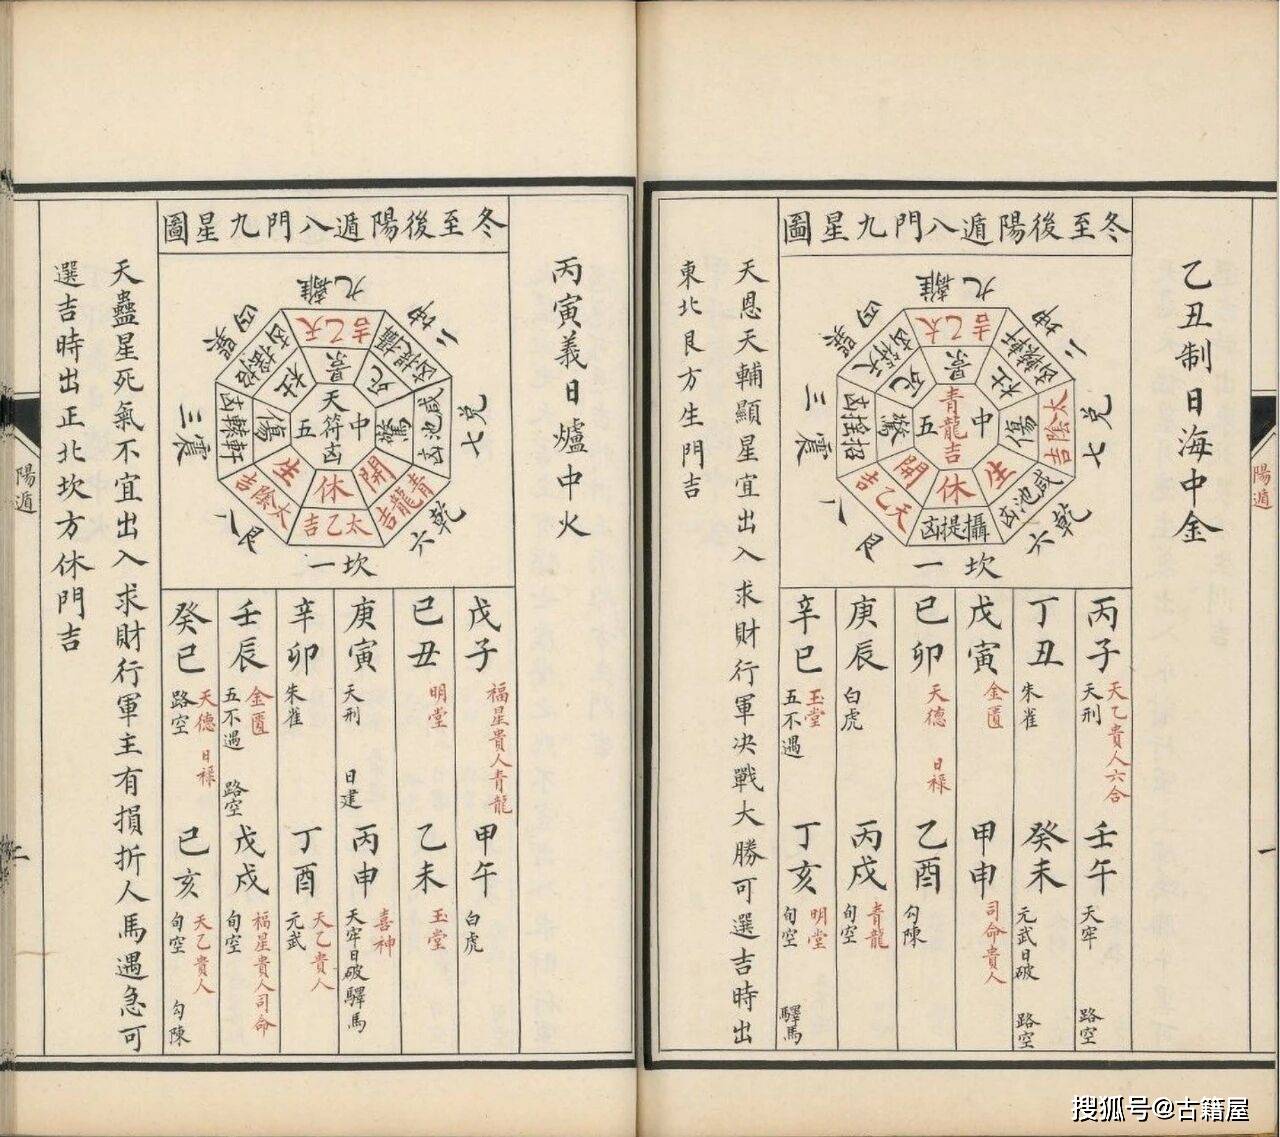 陽遁
一
乙丑制日海中金
冬至後陽遁八門九星圖
離九
坤二
兌七
乾六
坎一
艮八
震三
巽四
太乙吉
軒轅凶
太陰吉
咸池凶
攝提凶
天乙吉
招搖凶
天符凶
景
杜
傷
生
休
開
驚
死
中五
青龍吉
丙子
天乙貴人六合
天刑
壬午
天牢
路空
丁丑
朱雀
癸未
元武日破
路空
戊寅
金匱
甲申
司命貴人
己卯
天德
日祿
乙酉
勾陳
庚辰
白虎
丙戌
青龍
旬空
辛巳
玉堂
五不遇
丁亥
明堂
旬空
驛馬
天恩天輔顯星宜出入求財行軍決戰大勝可選吉時出
東北艮方生門吉
丙寅義日爐中火
冬至後陽遁八門九星圖
離九
坤二
兌七
乾六
坎一
艮八
震三
巽四
天乙吉
攝提凶
咸池凶
青龍吉
太乙吉
太陰吉
軒轅凶
招搖凶
景
死
驚
開
休
生
傷
杜
中五
天符凶
戊子
福星貴人青龍
甲午
白虎
己丑
明堂
乙未
玉堂
庚寅
天刑
日建
丙申
喜神
天牢日破驛馬
辛卯
朱雀
丁酉
天乙貴人
元武
壬辰
金匱
五不遇
路空
戊戌
福星貴人司命
旬空
癸巳
天德
日祿
路空
己亥
天乙貴人
旬空
勾陳
天蠱星死氣不宜出入求財行軍主有損折人馬遇急可
選吉時出正北坎方休門吉
陽遁
二
搜狐号@古籍屋